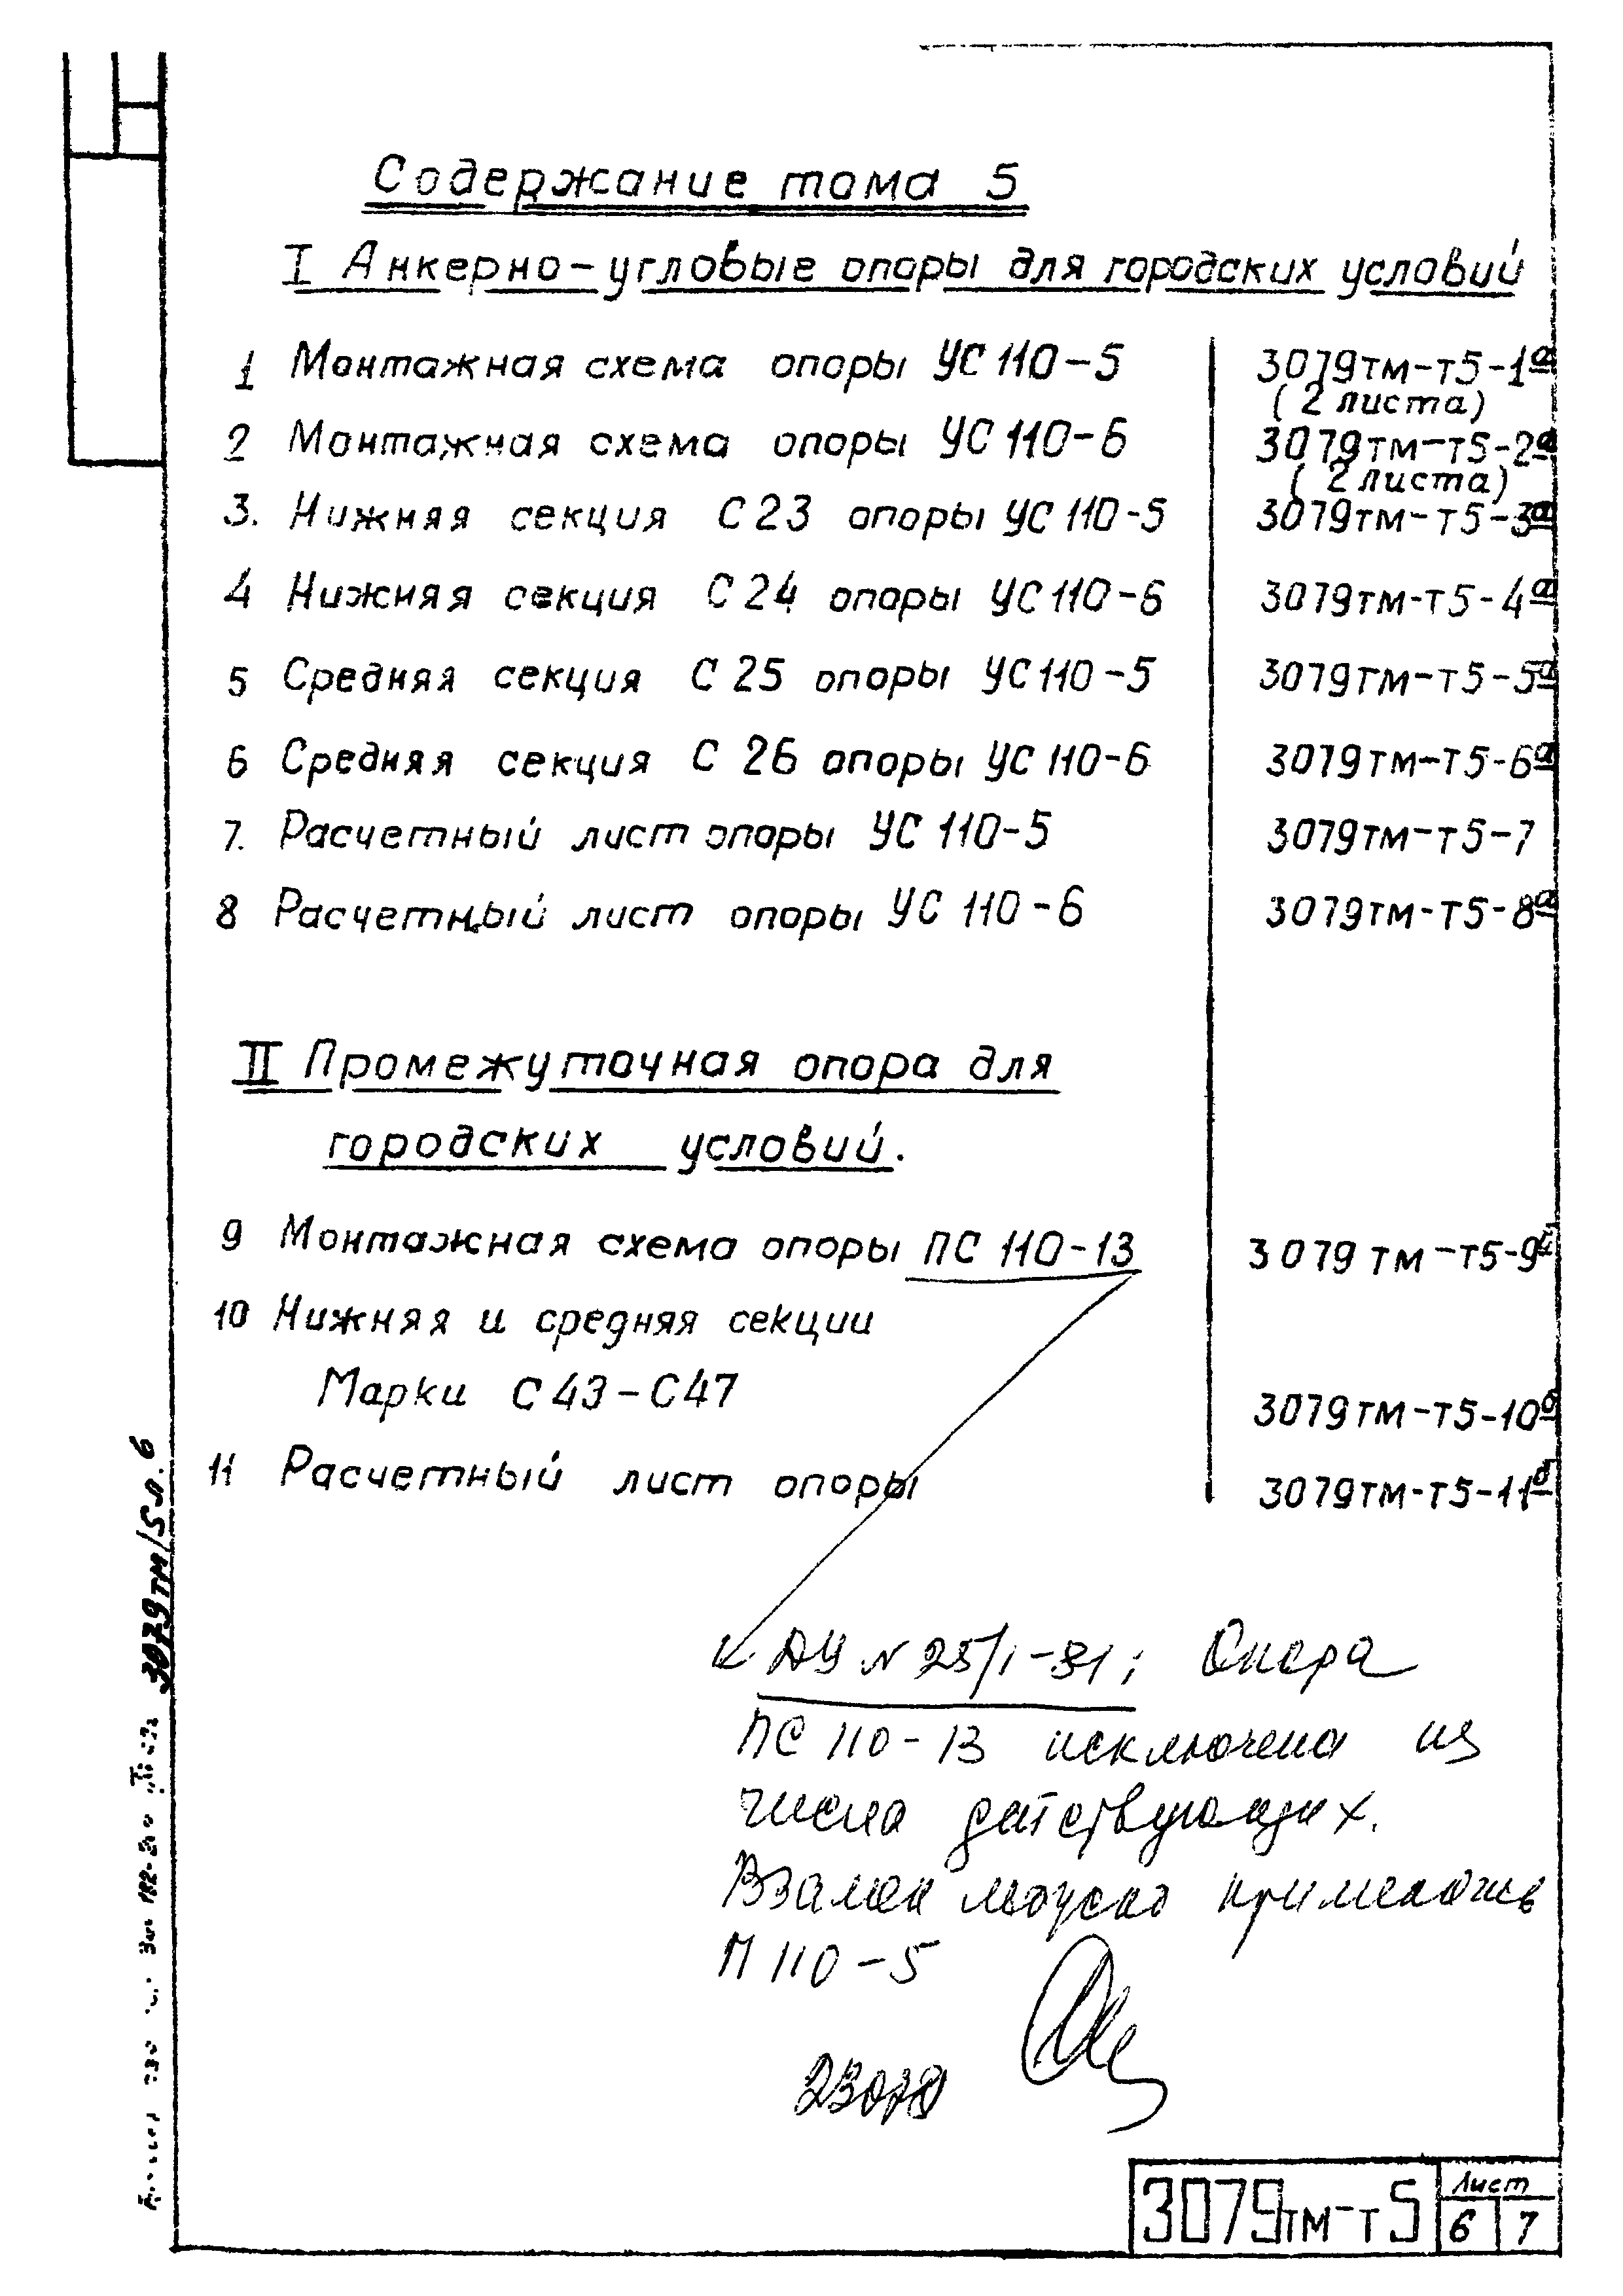 Содержание тома 5
I Анкерно-угловые опоры для городских условий
1 Монтажная схема опоры УС 110-5 3079тм-т5-1а
(2 листа)
2 Монтажная схема опоры УС 110-6 3079тм-т5-2а
(2 листа)
3. Нижняя секция С 23 опоры УС 110-5 3079тм-т5-3а
4 Нижняя секция С 24 опоры УС 110-6 3079тм-т5-4а
5 Средняя секция С 25 опоры УС 110-5 3079тм-т5-5а
6 Средняя секция С 26 опоры УС 110-6 3079тм-т5-6а
7. Расчетный лист опоры УС 110-5 3079тм-т5-7
8 Расчетный лист опоры УС 110-6 3079тм-т5-8а
II Промежуточная опора для
городских условий.
9 Монтажная схема опоры ПС 110-13 3079тм-т5-9
10 Нижняя и средняя секции
Марки С 43-С47 3079тм-т5-10б
11 Расчетный лист опоры 3079тм-т5-11б
ДУ N 25/1-81; Опора
ПС 110-13 исключена из
числа действующих.
Взамен можно применять
П 110-5
3079тм/5 л. 6
3079тм-т5
Лист
6 7